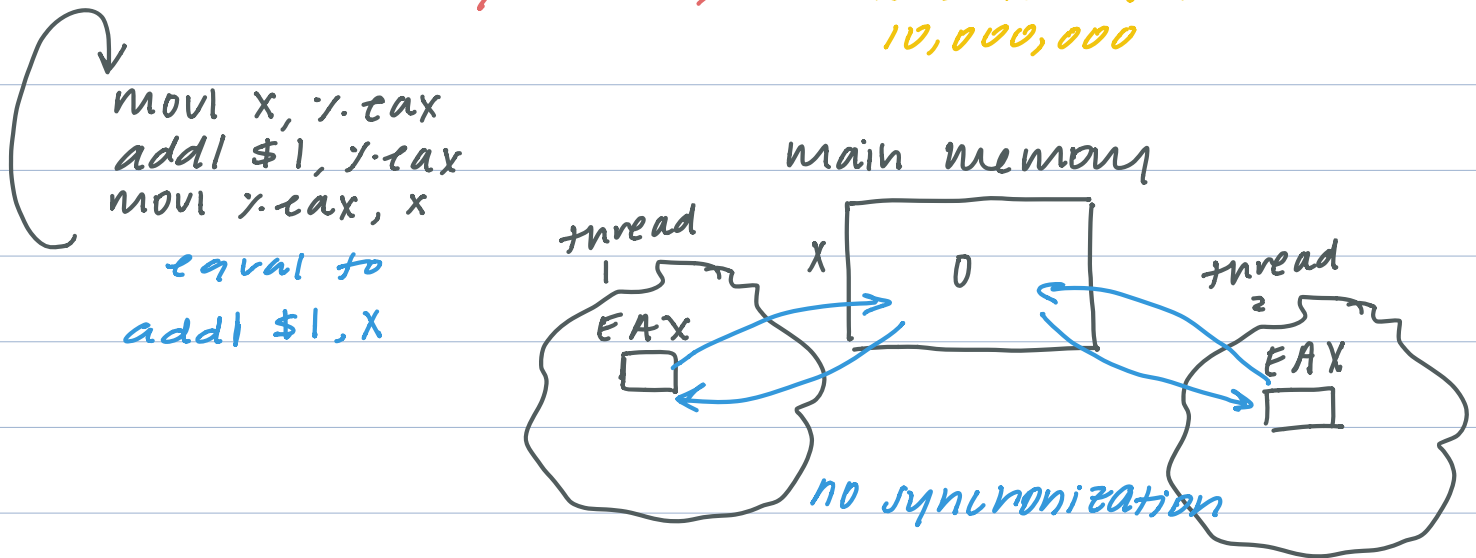 10,000,000
movl x, %eax
addl $1, %eax
movl %eax, x
equal to
addl $1, X
main memory
X
0
thread
1
EAX
thread
2
EAX
no syncronization